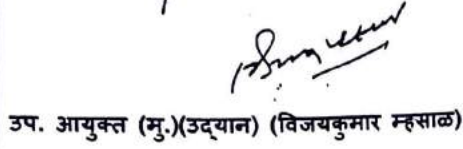 उप. आयुक्त (मु.)(उद्यान) (विजयकुमार म्हसाळ)